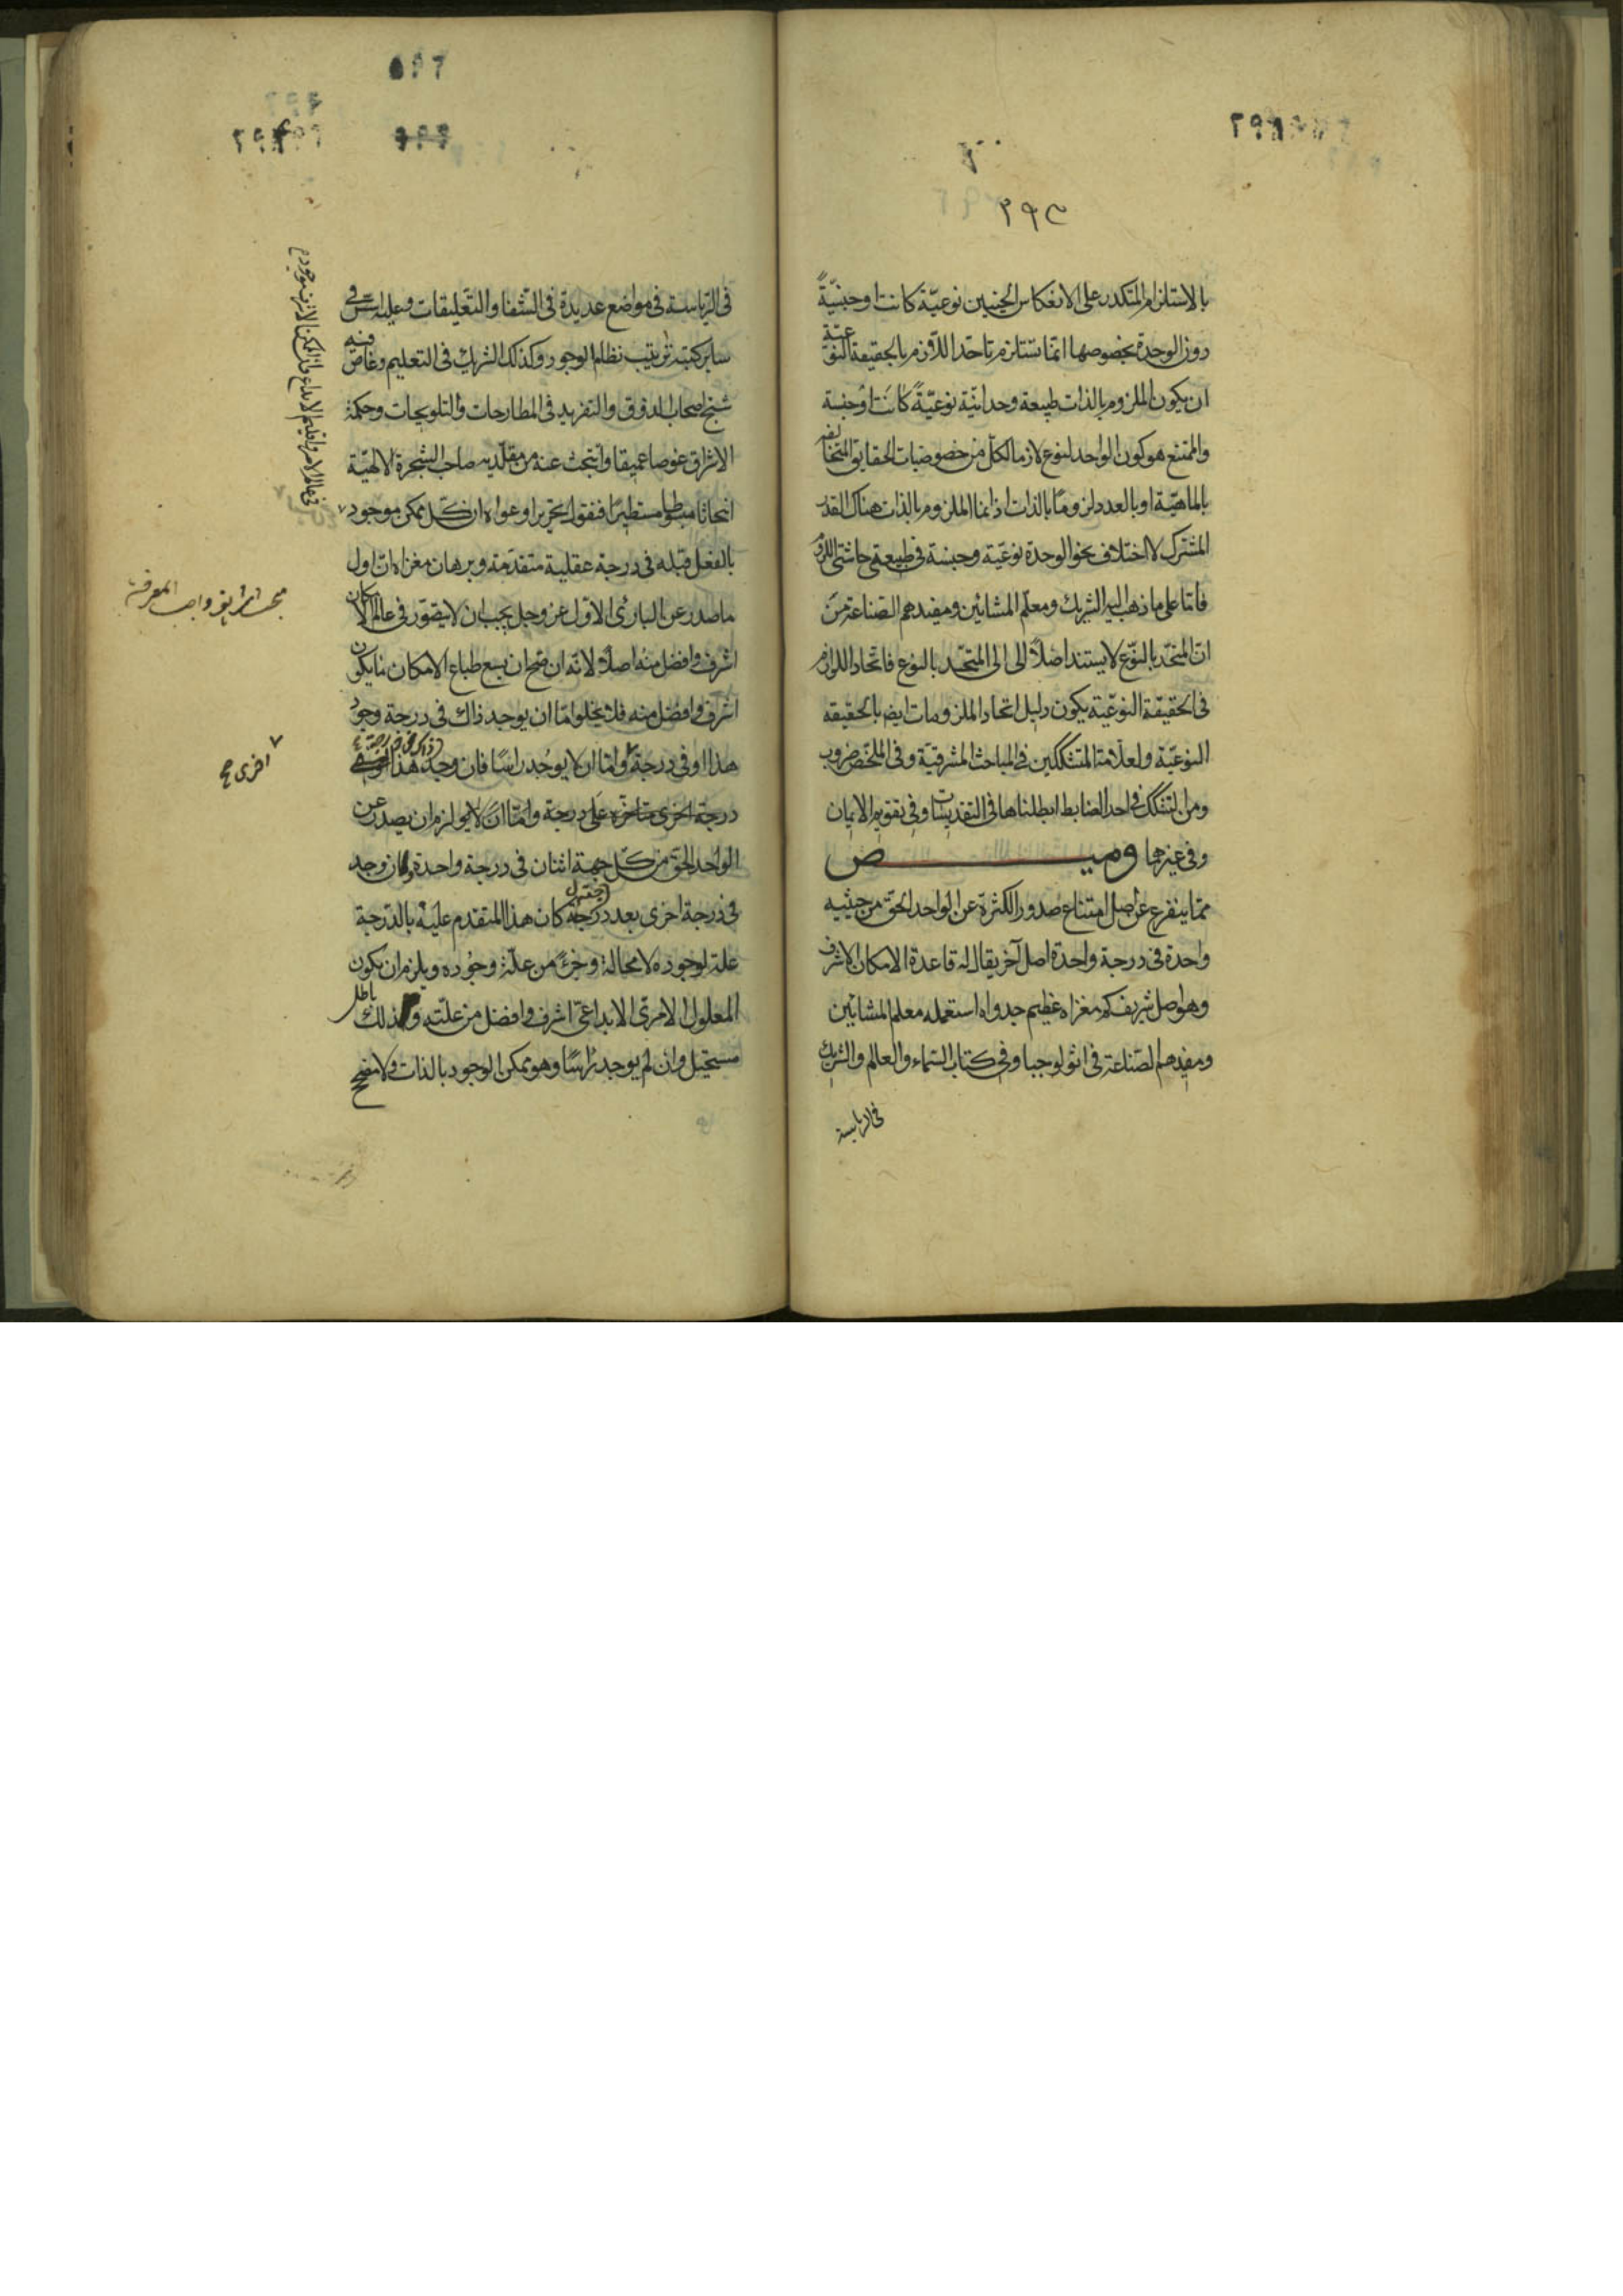 ٢٩٣
بالاستلزام المتكدر على الانعكاس الجنبين نوعية كانت او جنسيةً
دون الوحدة بخصوصها انما تستلزم تاحد اللازم بالحقيقة النوعية
ان يكون الملزوم بالذات طبيعة وحدانية نوعيّةً كانت او جنسية
والممتنع هو كون الواحد لنوع لازما لكل من خصوصيات الحقايق المتخالفة
بالماهيّة او بالعدد لزوما بالذات اذ انما الملزوم بالذات هناك القدر
المشترك لا اختلاف نحو الوحدة نوعية وجنسية في طبيعة حاشيتي اللزوم
فامّا على ما ذهب اليه الشريك ومعلّم المشائين ومفيدهم الصناعة من
انّ المتحّد بالنوّع لا يستند اصلاً الى الى المتحّد بالنوع فاتحاد اللوازم
فى الحقيقة النوعّية يكون دليل اتحاد الملزومات ايضا بالحقيقة
النوعيّة ولعلّامة المتشككين فى المباحث المشرقيّة وفى الملخّص ضروب
ومن لتشكك فى احد الضابط ابطلناها فى التقديسات وفى تقويم الايمان
وفى غيرهما وميـــض
ممّا ينفرع عن اصل امتناع صدور الكثرة عن الواحد الحق من حيثيه
واحدة فى درجة واحدة اصل آخر يقال له قاعدة الامكان الاشرف
وهو اصل شريف كم مغزاه عظيم جدواه استعمله معلم المشائين
ومفيدهم الصّناعة فى اثولوجيا وفى كتاب السّماء والعالم والشريك
فى الرياسة
٥٩٦
فى الرياسة فى مواضع عديدة فى الشفا والتعليقات وعليه اسّس فى
ساير كتبه ترتيب نظام الوجود وكذلك الشريك فى التعليم وغاص فيه
شيخ اصحاب الذوق والتفريد فى المطارحات والتلويحات وحكمة
الاشراق غوصا عميقا وابتحث عنه من مقلّديه صاحب الشجرة الالهيّة
ابحاثا مستطيرًا فنقول تحريرا وعواه ان كل ممكن موجود
بالفعل قبله فى درجة عقلية متقدّمة وبرهان مغزاه انّ اول
ما صدر عن البارئ الاوّل عز وجل يجب ان لا يتصوّر فى عالم الامكان
اشرف وافضل منه اصلا لانّه ان صح ان يسع طباع الامكان ما يكون
اشرف وافضل منه فلا يخلو امّا ان يوجد ذاك فى درجة وجود
هذا او فى درجة وامّا ان لا يوجد راسًا فان وجد ذاك فى درجة هذا
درجة اخرى متاخره على درجة وامّا ان لا يو لزم ان يصدر عن
الواحد الحق من كل جهة اثنان فى درجة واحدة وان وجد
فى درجة اخرى بعد درجته كان هذا المتقدم عليه بالدّرجة
علة لوجوده لا محالة وجزءً من علّة وجوده ويلزم ان يكون
المعلول الامرى الابداعى اشرف وافضل من علّته وذلك باطل
مستحيل وان لم يوجد راسًا وهو ممكن الوجود بالذات ولا مصحح
فى عالم الامر واقليم الابداع فان الممكن الاشرف موجود
واجب المعرفة
اخرى صح